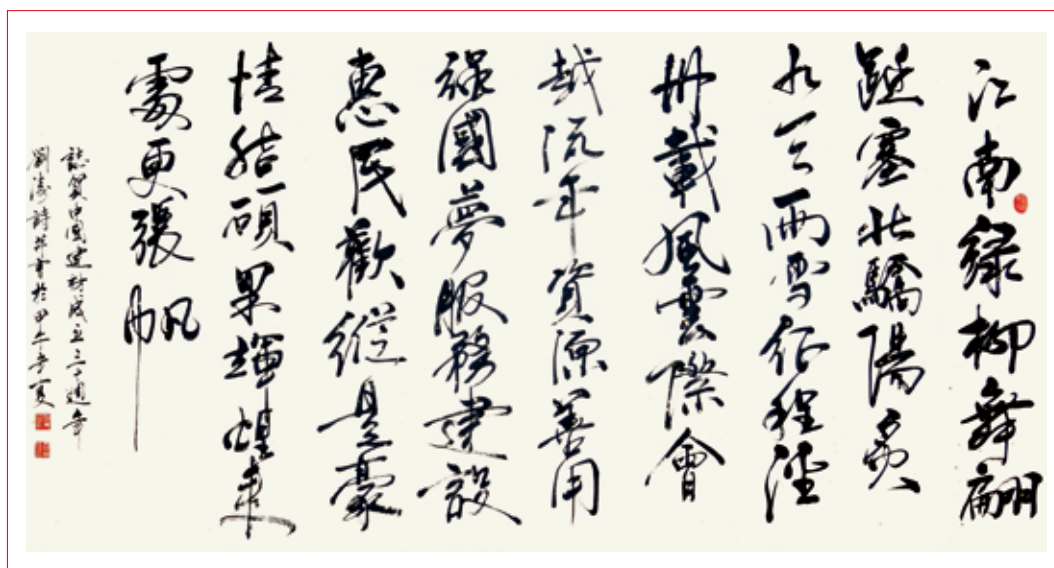 江南綠柳舞翩
躚塞北驕陽炙
九天雨雪征程
卅載風雲際會
越流年資源善用
綠國夢服務建設
惠民歡縱是豪
情結碩果輝煌來
處更張帆
誌賀中國建材成立三十週年
劉濤詩并書於甲午年夏